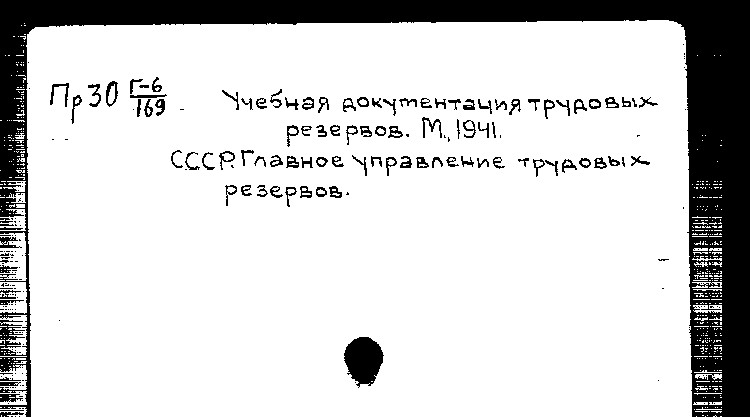 Пр30 Г-6/169
Учебная документация трудовых
резервов. М., 1941.
СССР. Главное управление трудовых
резервов.